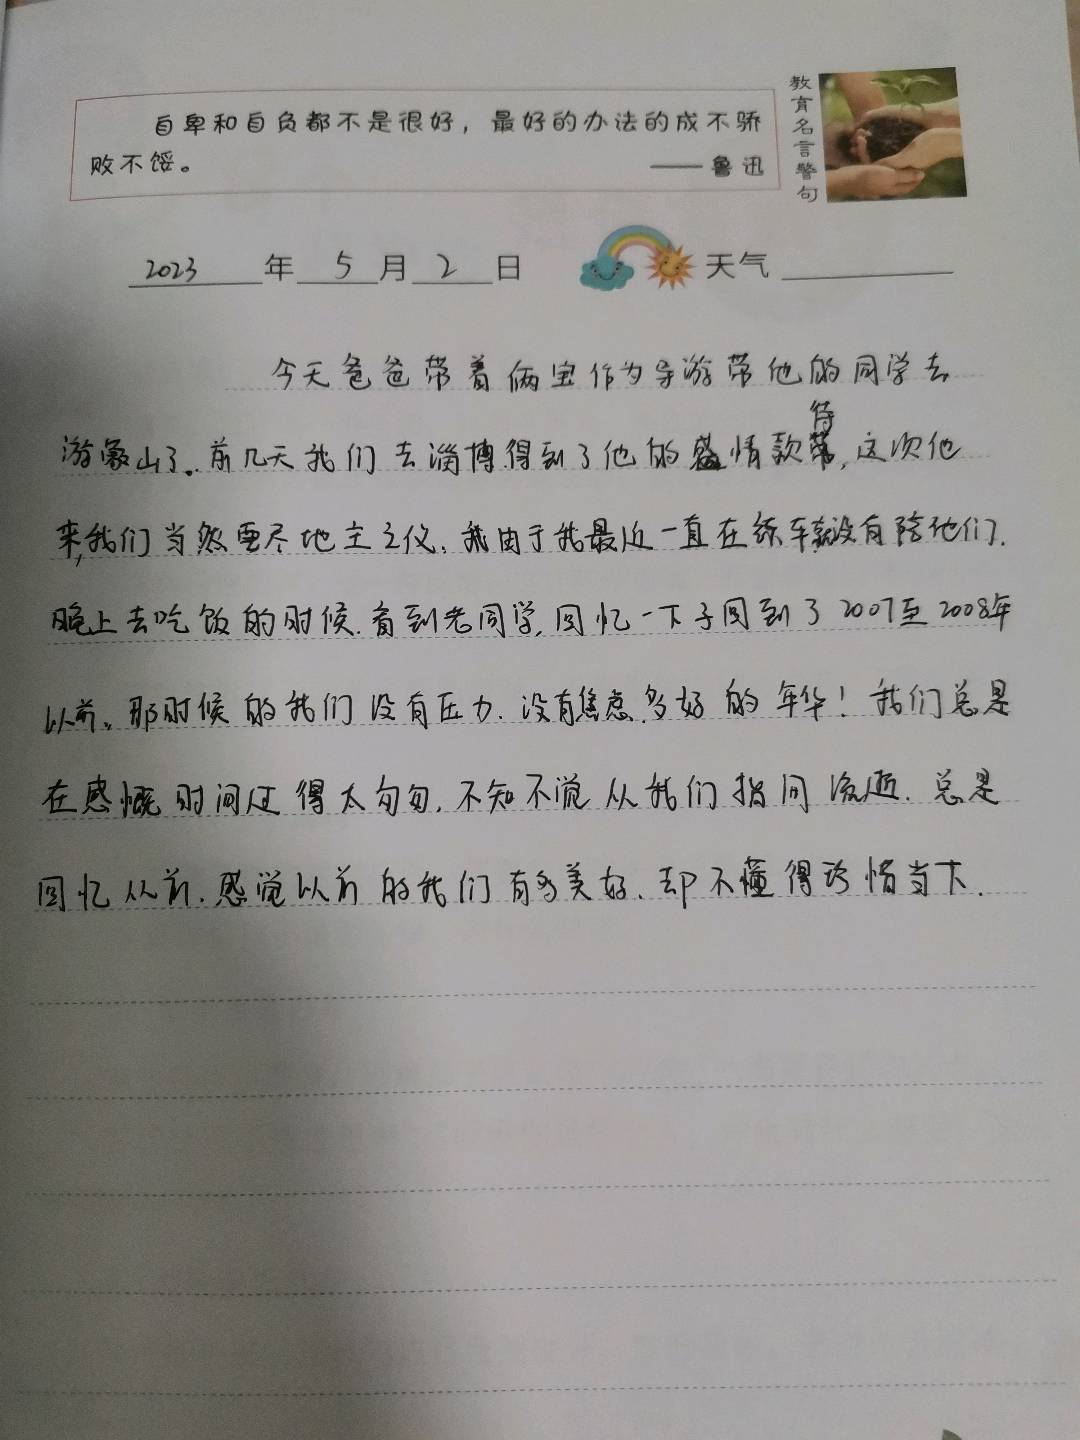 自卑和自负都不是很好，最好的办法的成不骄
败不馁。
——鲁迅
教育名言警句
2023年5月2日 天气
今天爸爸带着俩宝作为导游带他的同学去
游象山了。前几天我们去淄博得到了他的盛情款待，这次他
来，我们当然要尽地主之仪，我由于我最近一直在练车就没有陪他们.
晚上去吃饭的时候.看到老同学,回忆一下子回到了2007至2008年
以前。那时候的我们没有压力.没有焦虑.多好的年华！我们总是
在感慨时间过得太匆匆,不知不觉从我们指间流逝.总是
回忆从前.感觉以前的我们有多美好.却不懂得珍惜当下.